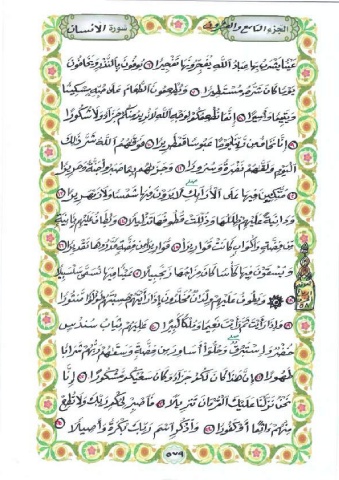 الجزء التاسع والعشرون
سورة الإنسان
عَيْنًا يَشْرَبُ بِهَا عِبَادُ اللَّهِ يُفَجِّرُونَهَا تَفْجِيرًا يُوفُونَ بِالنَّذْرِ وَيَخَافُونَ
يَوْمًا كَانَ شَرُّهُ مُسْتَطِيرًا وَيُطْعِمُونَ الطَّعَامَ عَلَى حُبِّهِ مِسْكِينًا
وَيَتِيمًا وَأَسِيرًا إِنَّمَا نُطْعِمُكُمْ لِوَجْهِ اللَّهِ لَا نُرِيدُ مِنْكُمْ جَزَاءً وَلَا شُكُورًا
إِنَّا نَخَافُ مِنْ رَبِّنَا يَوْمًا عَبُوسًا قَمْطَرِيرًا فَوَقَاهُمُ اللَّهُ شَرَّ ذَلِكَ
الْيَوْمِ وَلَقَّاهُمْ نَضْرَةً وَسُرُورًا وَجَزَاهُمْ بِمَا صَبَرُوا جَنَّةً وَحَرِيرًا
مُتَّكِئِينَ فِيهَا عَلَى الْأَرَائِكِ لَا يَرَوْنَ فِيهَا شَمْسًا وَلَا زَمْهَرِيرًا
وَدَانِيَةً عَلَيْهِمْ ظِلَالُهَا وَذُلِّلَتْ قُطُوفُهَا تَذْلِيلًا وَيُطَافُ عَلَيْهِمْ بِآنِيَةٍ
مِنْ فِضَّةٍ وَأَكْوَابٍ كَانَتْ قَوَارِيرَا قَوَارِيرَ مِنْ فِضَّةٍ قَدَّرُوهَا تَقْدِيرًا
وَيُسْقَوْنَ فِيهَا كَأْسًا كَانَ مِزَاجُهَا زَنْجَبِيلًا عَيْنًا فِيهَا تُسَمَّى سَلْسَبِيلًا
وَيَطُوفُ عَلَيْهِمْ وِلْدَانٌ مُخَلَّدُونَ إِذَا رَأَيْتَهُمْ حَسِبْتَهُمْ لُؤْلُؤًا مَنْثُورًا
وَإِذَا رَأَيْتَ ثَمَّ رَأَيْتَ نَعِيمًا وَمُلْكًا كَبِيرًا عَالِيَهُمْ ثِيَابُ سُنْدُسٍ
خُضْرٌ وَإِسْتَبْرَقٌ وَحُلُّوا أَسَاوِرَ مِنْ فِضَّةٍ وَسَقَاهُمْ رَبُّهُمْ شَرَابًا
طَهُورًا إِنَّ هَذَا كَانَ لَكُمْ جَزَاءً وَكَانَ سَعْيُكُمْ مَشْكُورًا إِنَّا
نَحْنُ نَزَّلْنَا عَلَيْكَ الْقُرْآنَ تَنْزِيلًا فَاصْبِرْ لِحُكْمِ رَبِّكَ وَلَا تُطِعْ
مِنْهُمْ آثِمًا أَوْ كَفُورًا وَاذْكُرِ اسْمَ رَبِّكَ بُكْرَةً وَأَصِيلًا
٥٧٩